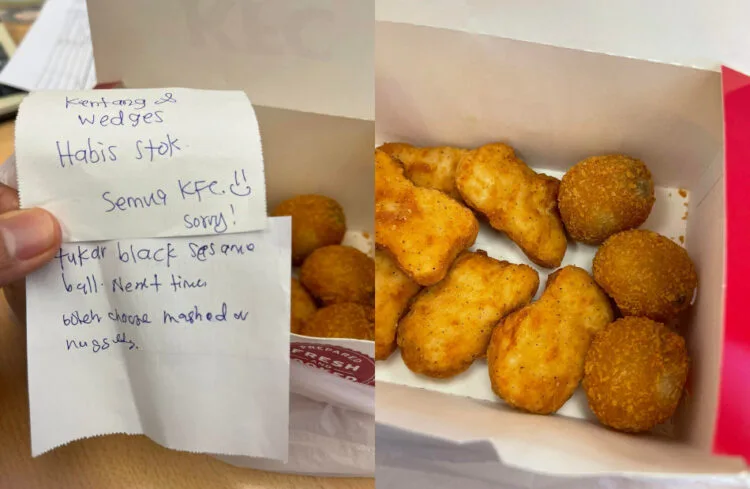 KFC
Kentang &
wedges
Habis Stok.
Semua KFC.
sorry!
tukar black sesame
ball. Next time
boleh choose mashed or
nuggets.
PREPARED
FRESH
AND